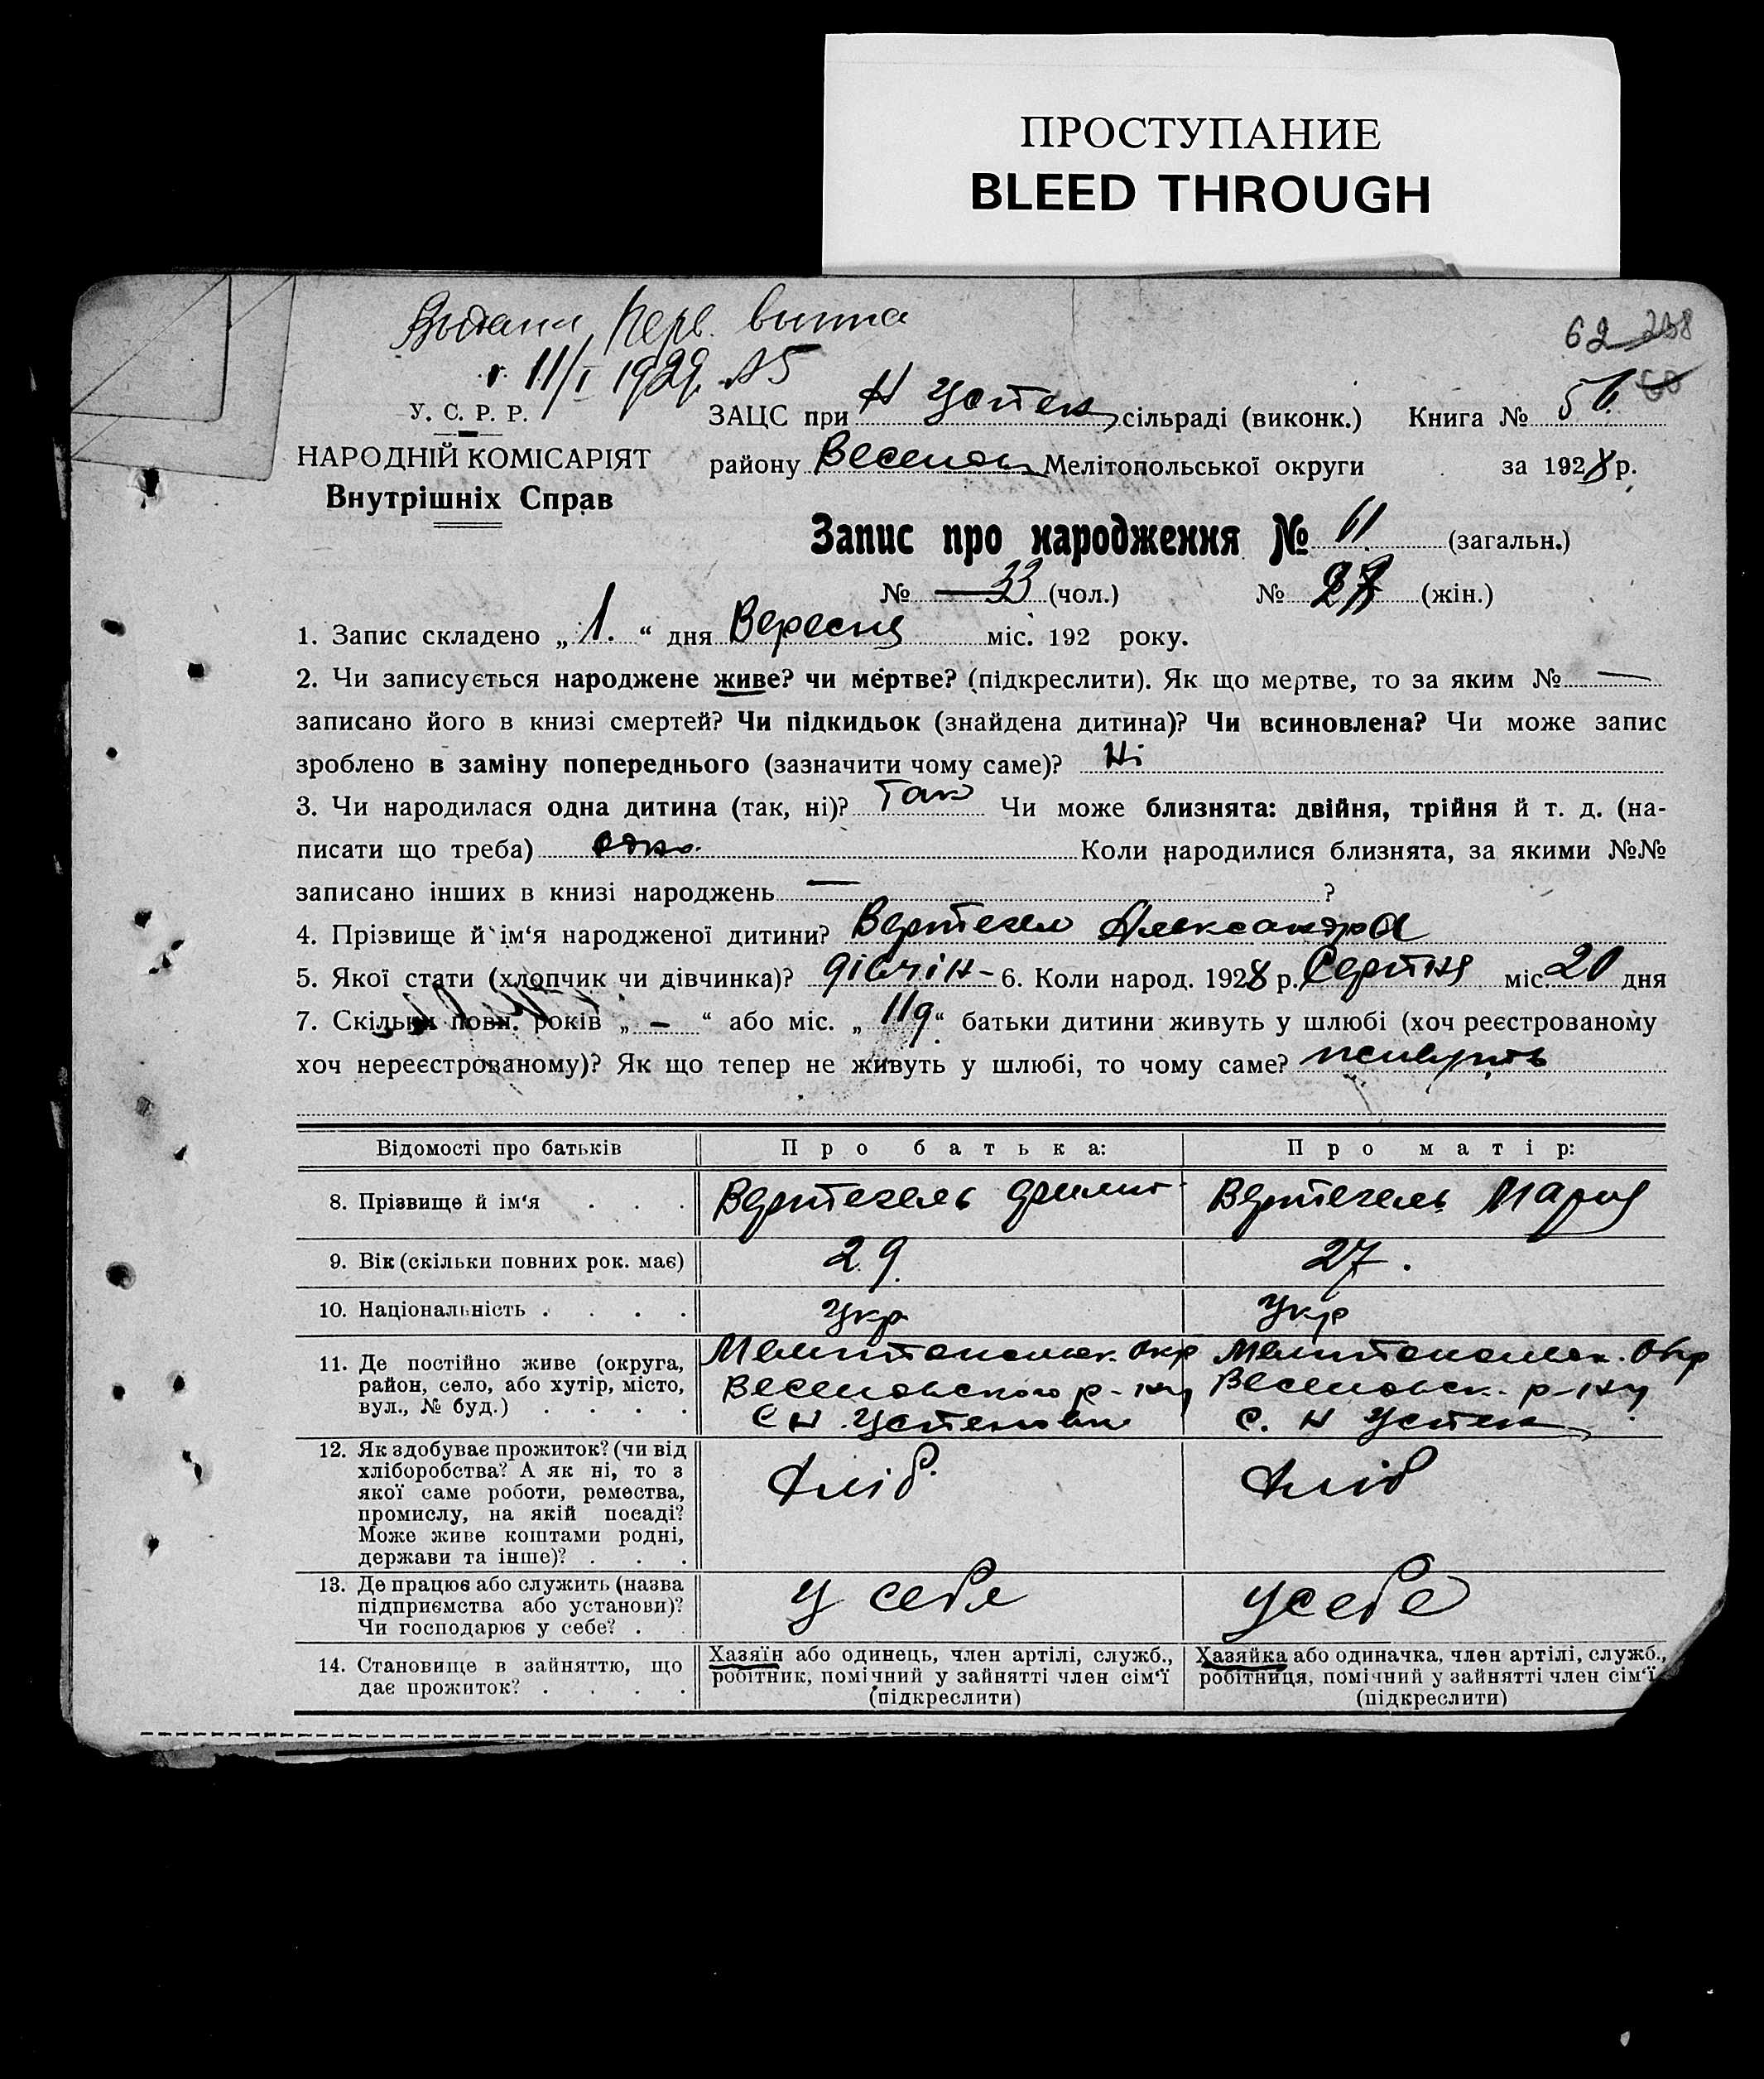 ПРОСТУПАНИЕ
BLEED THROUGH
11/I 1929. №5
62 60
У. С. Р. Р.
ЗАЦС при Н Устен сільраді (виконк.) Книга №
НАРОДНІЙ КОМІСАРІЯТ
Внутрішніх Справ
району Веселов Мелітопольської округи за 1928 р.
Запис про народження № 61 (загальн.)
№ 33 (чол.) № (жін.)
1. Запис складено „1.“ дня Вересня міс. 192 року.
2. Чи записується народжене живе? чи мертве? (підкреслити). Як що мертве, то за яким № —
записано його в книзі смертей? Чи підкидьок (знайдена дитина)? Чи всиновлена? Чи може запис
зроблено в заміну попереднього (зазначити чому саме)? Ні
3. Чи народилася одна дитина (так, ні)? Так Чи може близнята: двійня, трійня й т. д. (на-
писати що треба) одно. Коли народилися близнята, за якими №№
записано інших в книзі народжень — ?
4. Прізвище й ім‘я народженої дитини? Вертегел Александра
5. Якої стати (хлопчик чи дівчинка)? дівчін- 6. Коли народ. 1928 р. Серпня міс. 20 дня
7. Скільки повн. років „ — “ або міс. „ “ батьки дитини живуть у шлюбі (хоч реєстрованому
хоч нереєстрованому)? Як що тепер не живуть у шлюбі, то чому саме? живуть
Відомості про батьків Про батька: Про матір:
8. Прізвище й ім‘я . . . Вертегель Филип Вертегель Мария
9. Вік (скільки повних рок. має) 29. 27.
10. Національність . . . . Укр Укр
11. Де постійно живе (округа, Мелитопольск. Окр Мелитопольск. Окр
район, село, або хутір, місто, Веселовского р-ну Веселовск. р-ну
вул., № буд.) . . . . С Н Устеновк с. Н Устен
12. Як здобуває прожиток? (чи від
хліборобства? А як ні, то з Хліб. Хліб
якої саме роботи, ремества,
промислу, на якій посаді?
Може живе коштами родні,
держави та інше)? . . .
13. Де працює або служить (назва
підприємства або установи)? у себя у себе
Чи господарює у себе? .
14. Становище в зайняттю, що Хазяїн або одинець, член артілі, служб., Хазяйка або одиначка, член артілі, служб.,
дає прожиток? . . . . робітник, помічний у зайнятті член сім‘ї робітниця, помічний у зайнятті член сім‘ї
(підкреслити) (підкреслити)